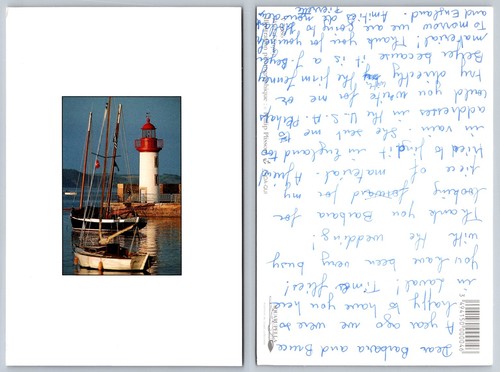 Dear Barbara and Bruce
A year ago we were so
happy to have you here
in Laval! Times flies!
You have been very busy
with the wedding!
Thank you Barbara for
looking forward for my
piece of material. A friend
tried to find it in England too
in vain. She sent me to
addresses in the U.S.A. Perhaps
could you write for me or
try directly with the firm Jenny
Beyer because it is a J. Beyer
material! Thank you for your help
To morrow we are going to Norway
and England. Amitiés de nous deux
Pierrette